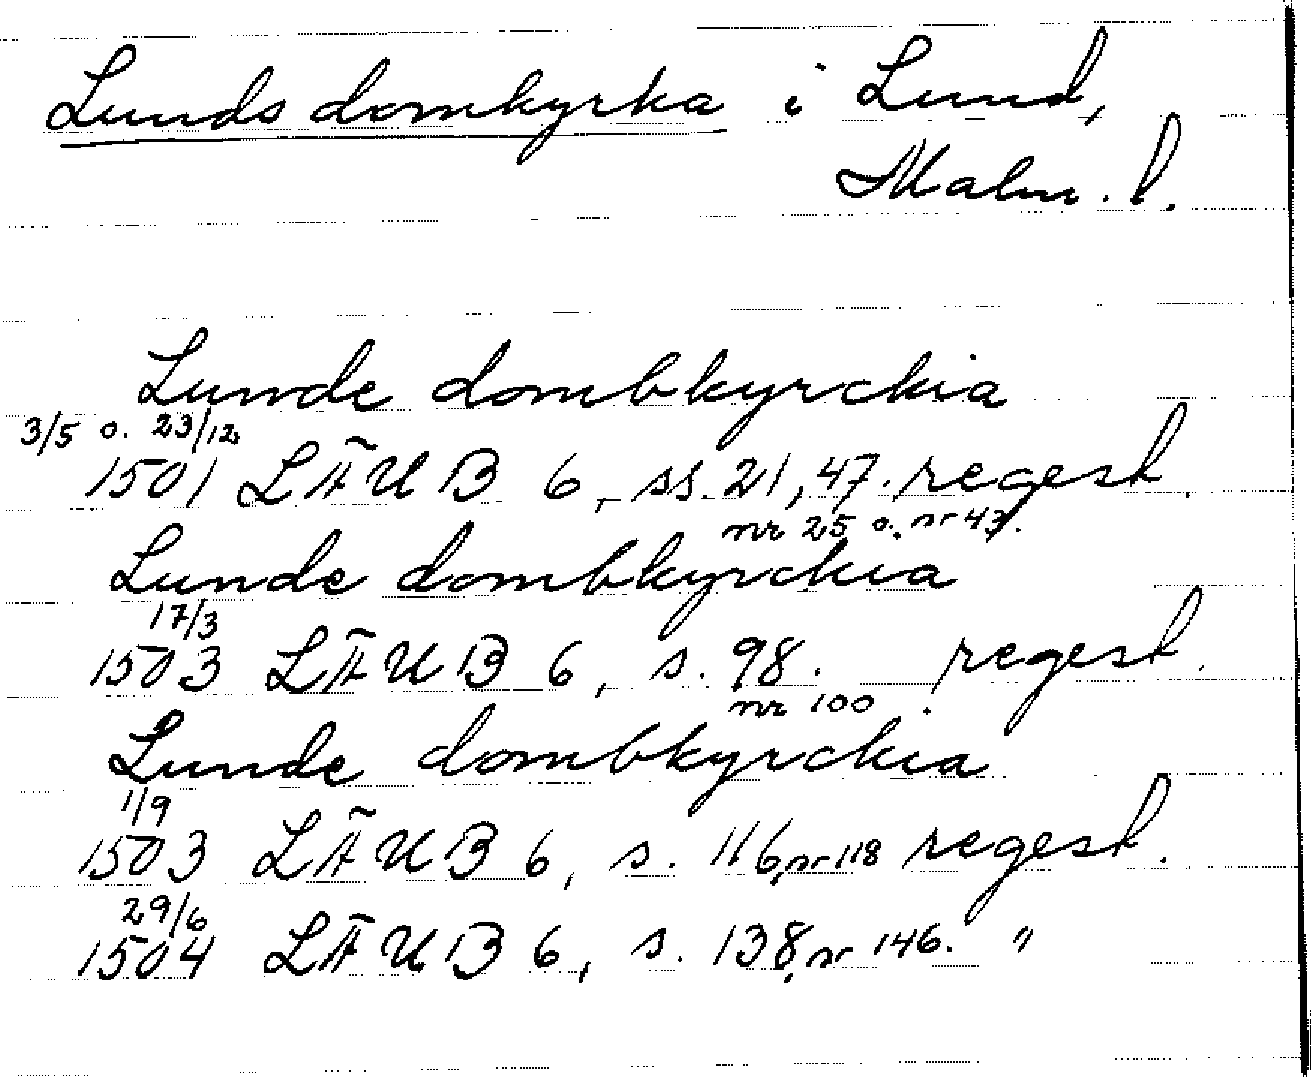 Lunds domkyrka i Lund,
Malm. l.
Lunde dombkyrckia
3/5 o. 23/12
1501 LÄUB 6, ss. 21, 47. regest.
nr 25 o. nr 47.
Lunde dombkyrckia
17/3
1503 LÄUB 6, s. 98. regest.
nr 100.
Lunde dombkyrckia
1/9
1503 LÄUB 6, s. 116, nr 118 regest.
29/6
1504 LÄUB 6, s. 138, nr 146. "